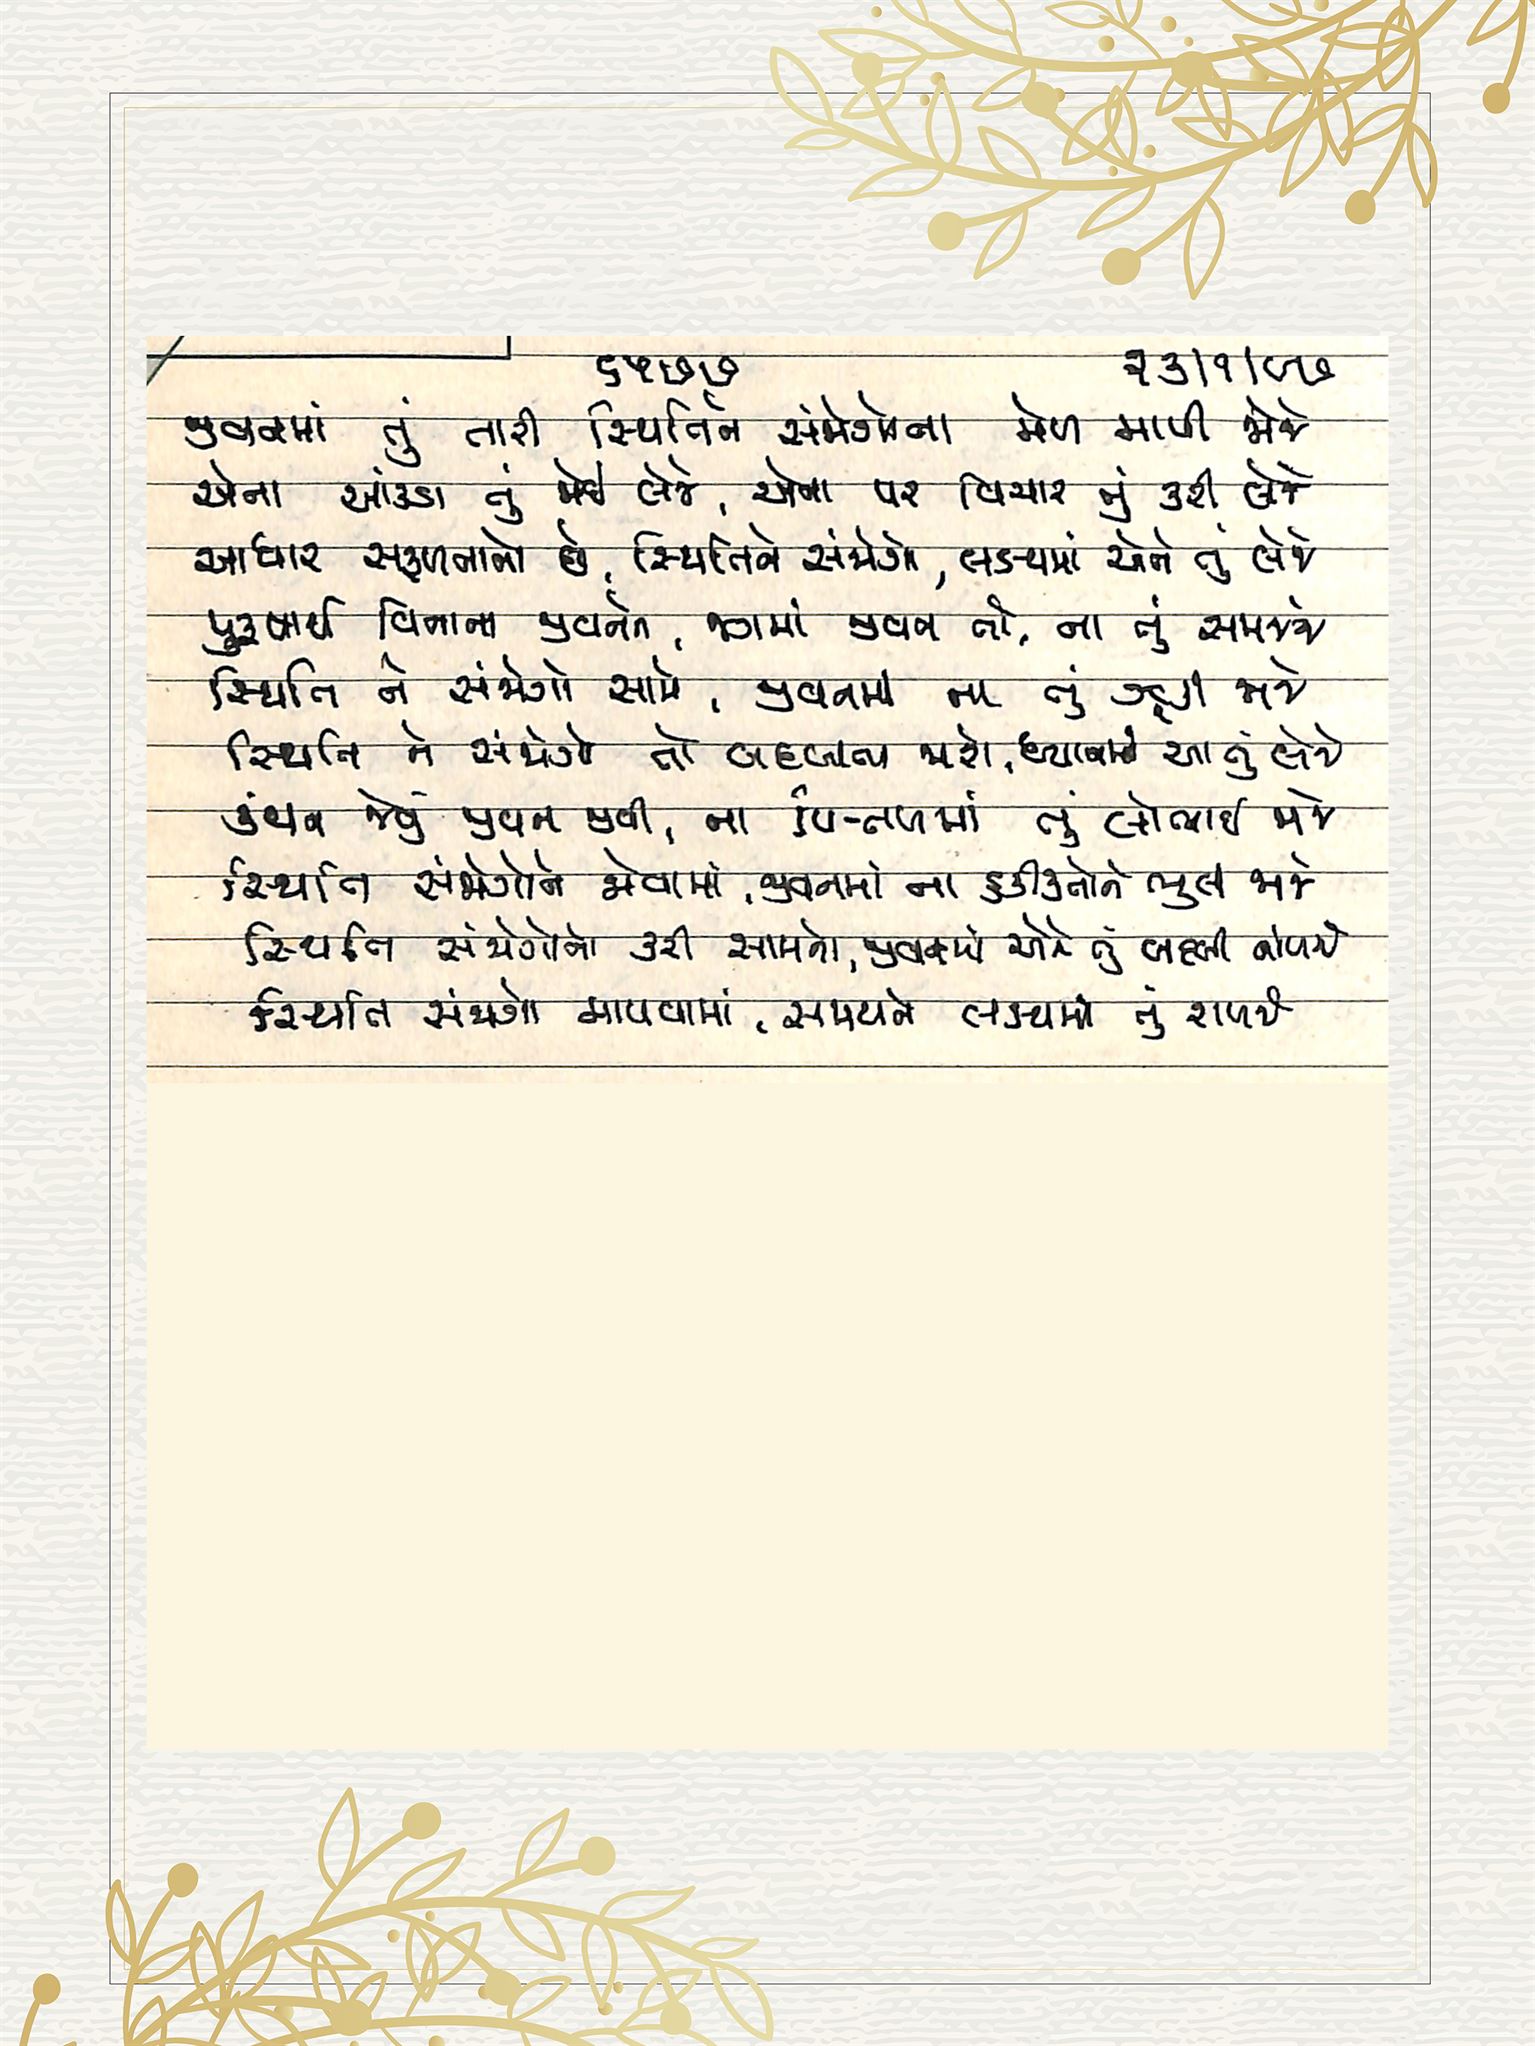 ૬૫૭૭ ૨૩/૧/૯૭
જીવનમાં તું તારી સ્થિતિને સંજોગોના મેળ માપી જોજે
એના આંકડા તું મેળવી લેજે, એના પર વિચાર તું કરી લેજે
આધાર સફળતાનો છે, સ્થિતિને સંજોગો, લક્ષ્યમાં એને તું લેજે
પુરૂષાર્થ વિનાના જીવનને, જગમાં જીવન તો, ના તું સમજજે
સ્થિતિ ને સંજોગો સામે, જીવનમાં ના તું ઝૂકી જાજે
સ્થિતિ ને સંજોગો તો બદલાતા જાશે, ધ્યાનમાં આ તું લેજે
કુંથન જેવું જીવન જીવી, ના પિત્તળમાં તું લોભાઈ જાજે
સ્થિતિ સંજોગોને જોવામાં, જીવનમાં ના હકીકતોને ભુલી જાજે
સ્થિતિ સંજોગોનો કરી સામનો, જીવનમાં એને તું બદલી નાંખજે
સ્થિતિ સંજોગો માપવામાં, સમયને લક્ષ્યમાં તું રાખજે